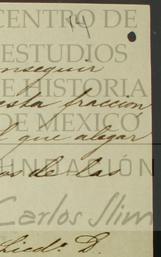 14
CENTRO DE
ESTUDIOS
onseguir
DE HISTORIA
esta fraccion
DE MEXICO
l que alegar
FUNDACIÓN
os de las
Carlos Slim
Lied.ª D.